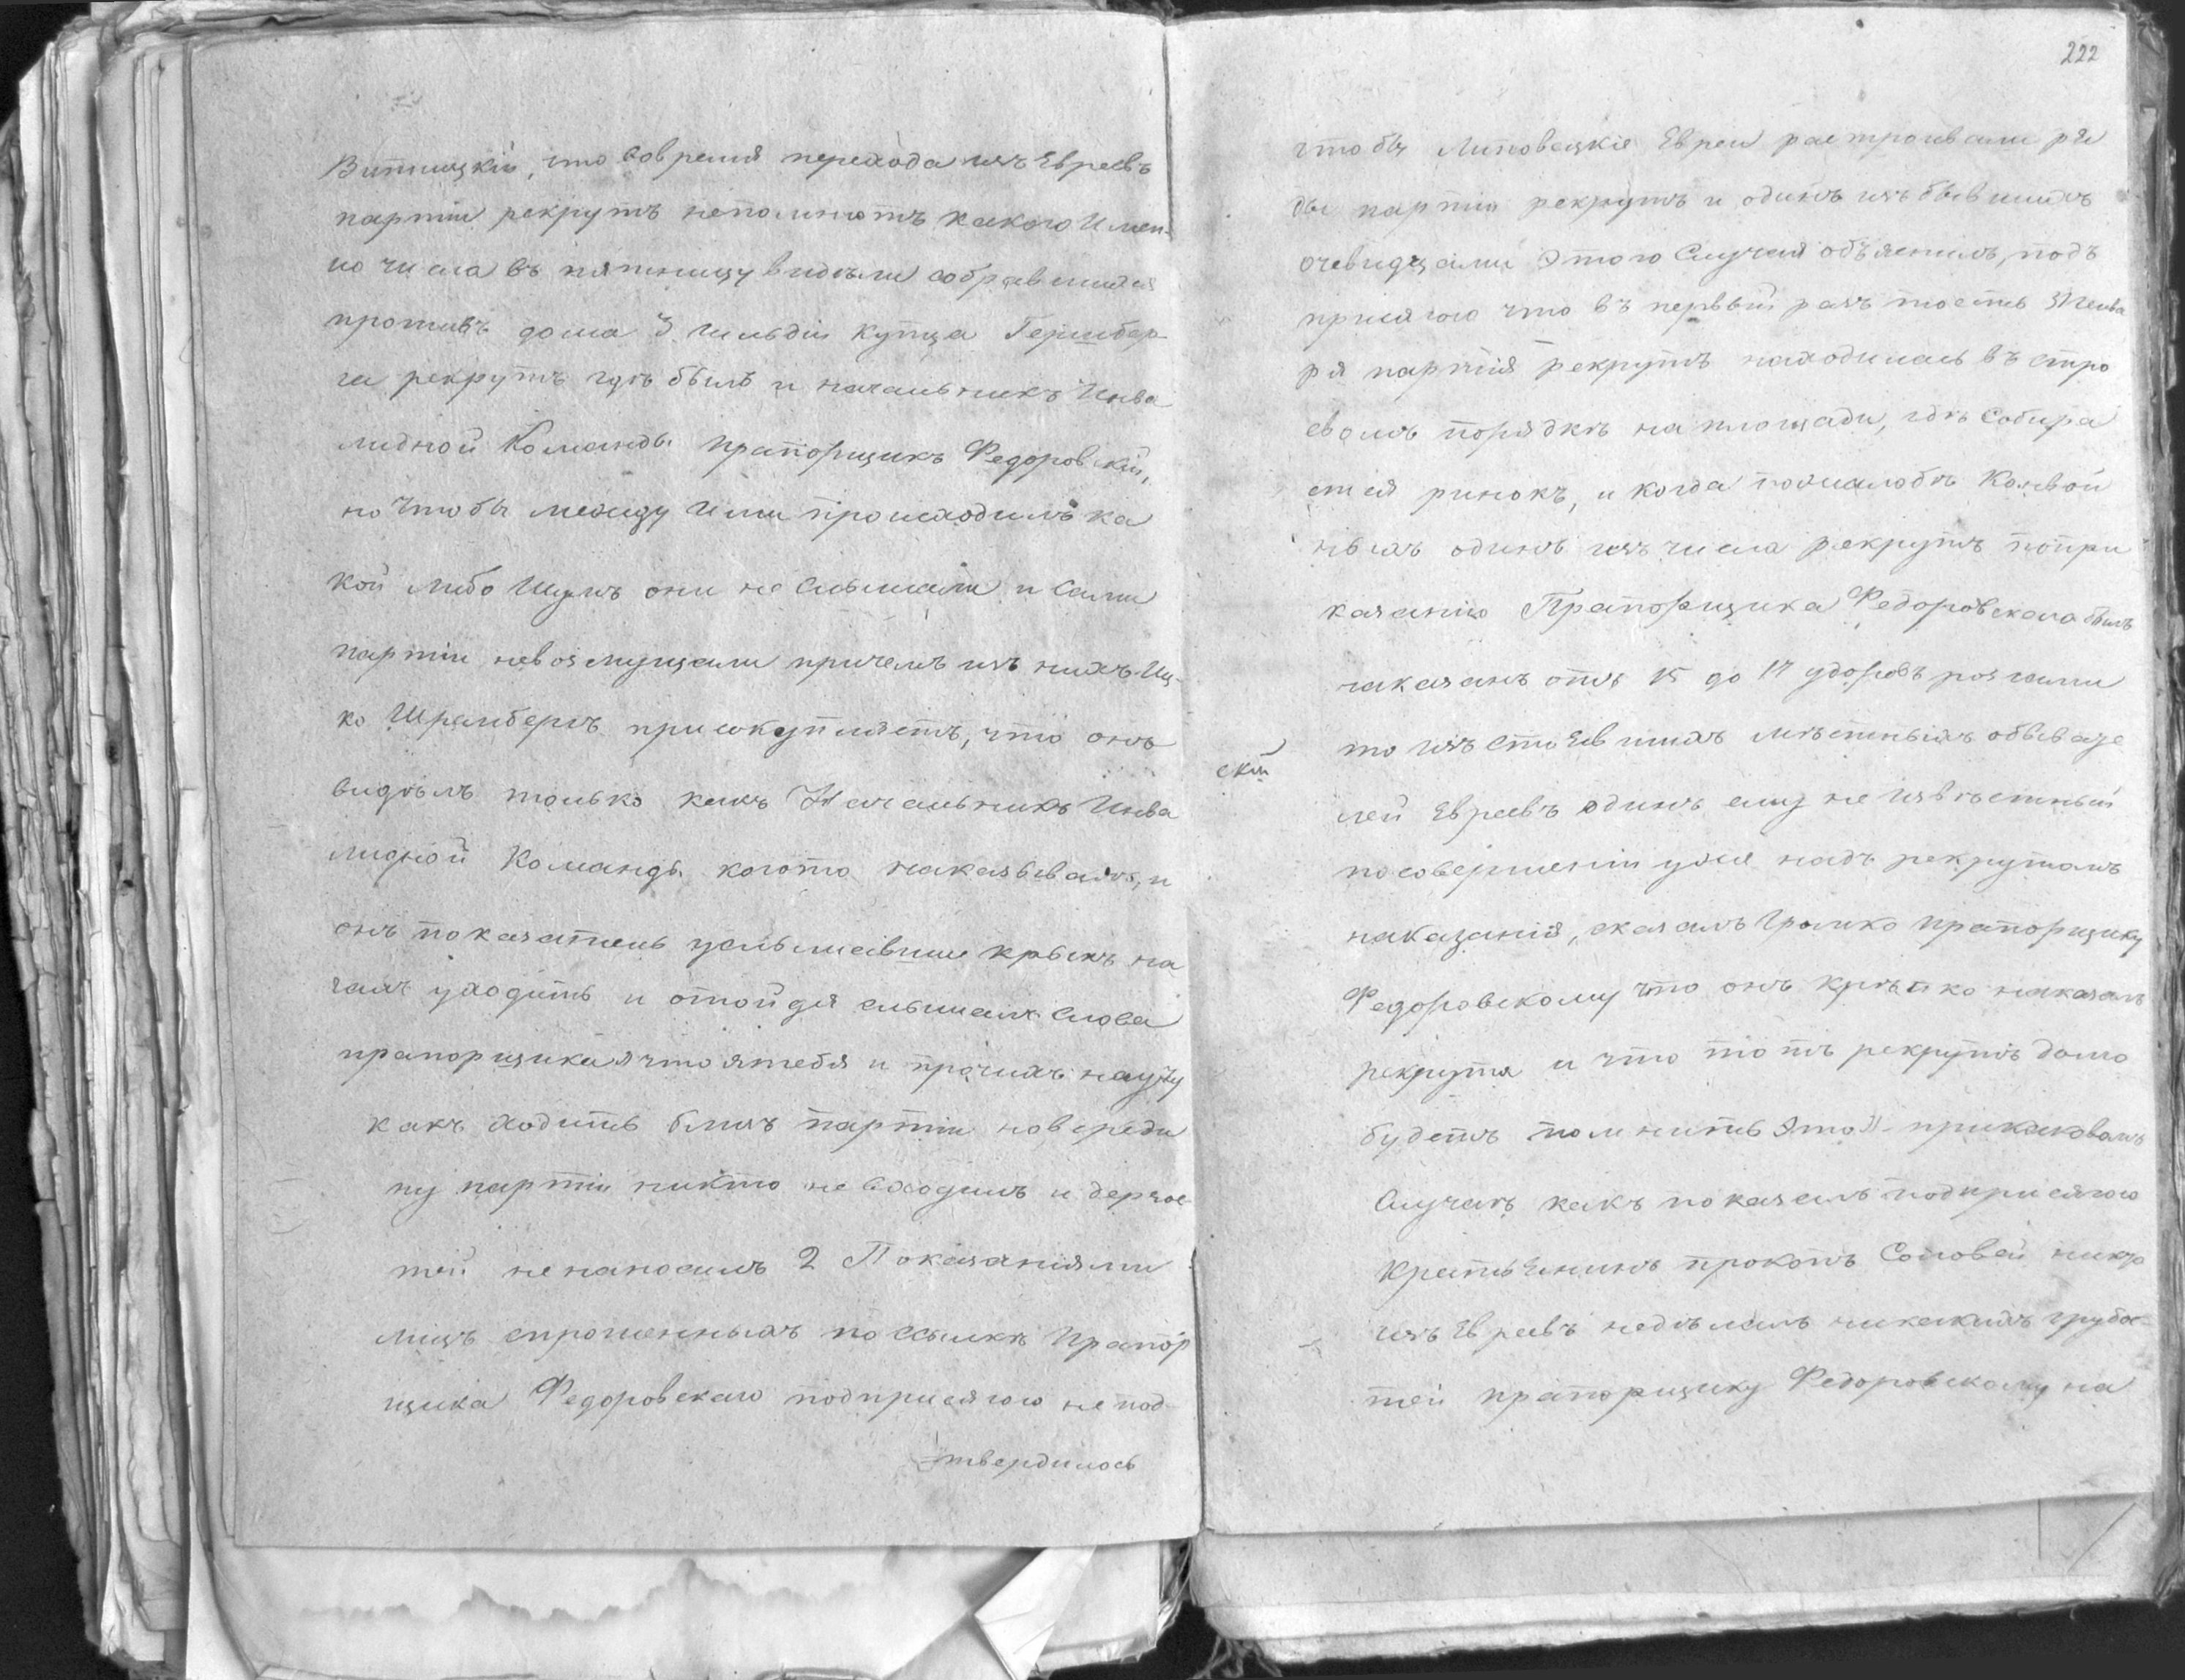 Витницкій, что вовремя перехода изъ Евреевъ
партіи рекрутъ непомнютъ какого Имен-
но числа въ пятницу видѣли собравшихся
противъ дома 3 гильдіи купца Гершбер-
га рекрутъ гдѣ былъ и начальникъ Инва
лидной Команды прапорщикъ Федоровскій,
но чтобы между ими происходилъ ка
кой либо Шумъ они не слышали и сами
партіи невозмущали причемъ изъ нихъ Иц-
ко Шрамбергъ присокупляетъ, что онъ
видѣлъ только какъ Начальникъ Инва
лидной Команды когото наказывалъ, и
онъ показатель услышавши крыкъ на
чалъ уходить и отойдя слышалъ слова
прапорщика я что ятебя и прочихъ научу
какъ ходить близъ партіи новсреди
ну партіи никто не входилъ и дерзос
тей ненаносилъ 2 Показаніями
лицъ спрошенныхъ по ссылкѣ Прапор
щика Федоровскаго подприсягою не под-
твердилось
222
чтобы Липовецкіе Евреи растроивали ря
ды партіи рекрутъ и одинъ изъ бывшихъ
очевидцами этого Случая объяснилъ, подъ
присягою что въ первый разъ тоесть Янва
ря партія рекрутъ находилась въ стро
евомъ порядкѣ на площади, гдѣ Собира
ется ринокъ, и когда по жалобѣ Конвой
ныхъ одинъ изъ числа рекрутъ попри
казанію Прапорщика Федоровскаго былъ
наказанъ отъ 15 до 17 ударовъ розгами
то изъ стоявшихъ мѣстныхъ обывате
скій
лей Евреевъ одинъ ему не извѣстный
посовершеніи уже надъ рекрутамъ
наказанія, сказалъ громко прапорщику
Федоровскому что онъ крѣпко наказалъ
рекрута и что тотъ рекрутъ долго
будетъ помнить это при каковомъ
Случаѣ какъ показалъ подприсягою
Крестьянинъ прокопъ Соловей никто
изъ Евреевъ недѣлалъ никакихъ грубос-
тей прапорщику Федоровскому на